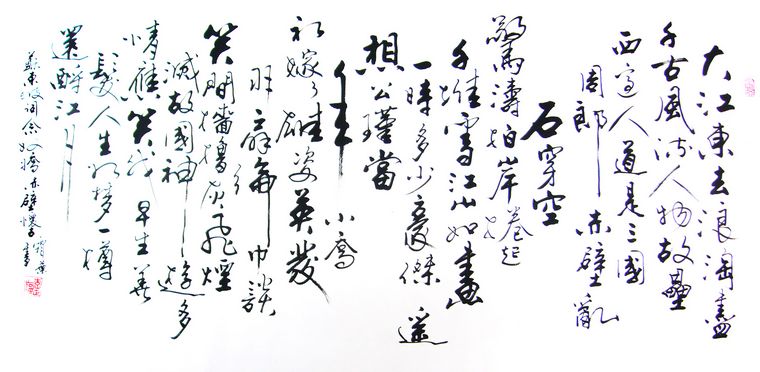 大江東去浪淘盡
千古風流人物故壘
西邊人道是三國
周郎赤壁亂
石穿空
驚濤拍岸卷起
千堆雪江山如畫
一時多少豪傑遙
想公瑾當
年小喬
初嫁了雄姿英發
羽扇綸巾談
笑間檣櫓灰飛煙
滅故國神遊多
情應笑我早生華
髮人生如夢一樽
還酹江月
蘇東坡詞念奴嬌赤壁懷古